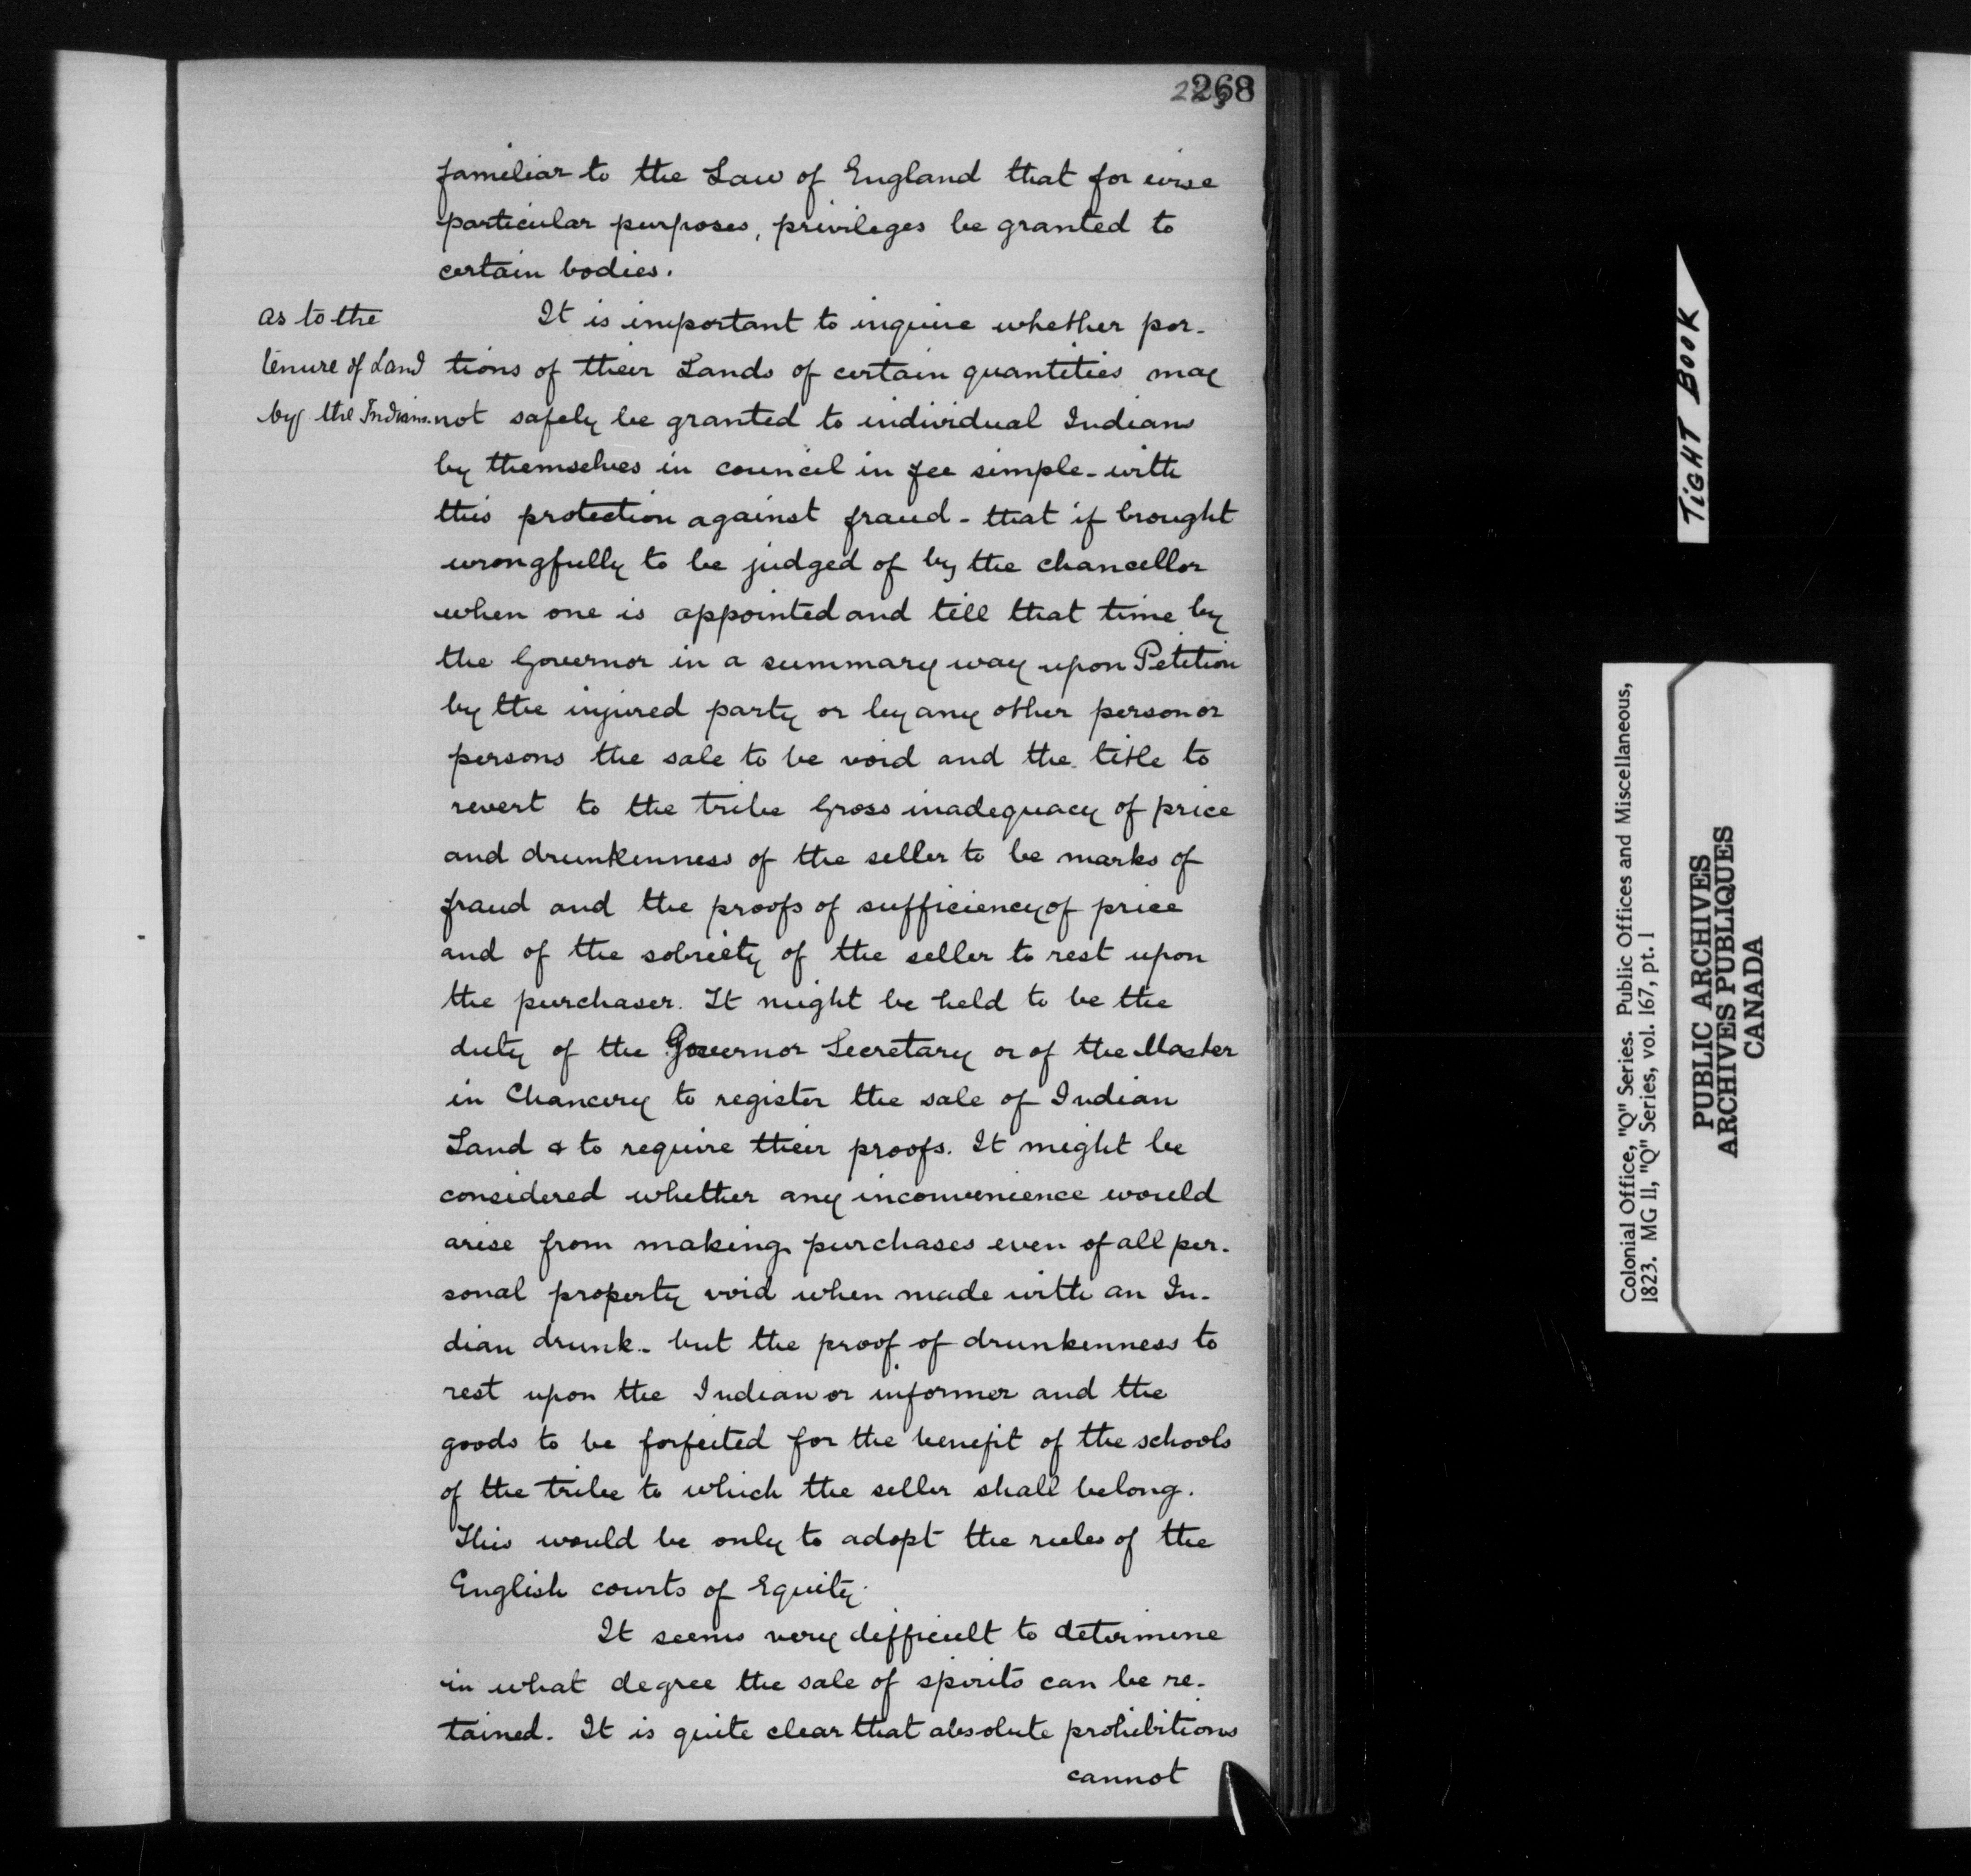 268
familiar to the Law of England that for wise
particular purposes, privileges be granted to
certain bodies.
as to the
tenure of Land
by the Indians.
It is important to inquire whether por-
tions of their Lands of certain quantities may
not safely be granted to individual Indians
by themselves in council in fee simple - with
this protection against fraud - that if brought
wrongfully to be judged of by the chancellor
when one is appointed and till that time by
the Governor in a summary way upon Petition
by the injured party or by any other person or
persons the sale to be void and the title to
revert to the tribe Gross inadequacy of price
and drunkenness of the seller to be marks of
fraud and the proofs of sufficiency of price
and of the sobriety of the seller to rest upon
the purchaser. It might be held to be the
duty of the Governor Secretary or of the Master
in Chancery to register the sale of Indian
Land & to require their proofs. It might be
considered whether any inconvenience would
arise from making purchases even of all per-
sonal property void when made with an In-
dian drunk - but the proof of drunkenness to
rest upon the Indian or informer and the
goods to be forfeited for the benefit of the schools
of the tribe to which the seller shall belong.
This would be only to adopt the rules of the
English courts of Equity.
It seems very difficult to determine
in what degree the sale of spirits can be re-
tained. It is quite clear that absolute prohibitions
cannot
TIGHT BOOK
Colonial Office, "Q" Series. Public Offices and Miscellaneous,
1823. MG 11, "Q" Series, vol. 167, pt. 1
PUBLIC ARCHIVES
ARCHIVES PUBLIQUES
CANADA